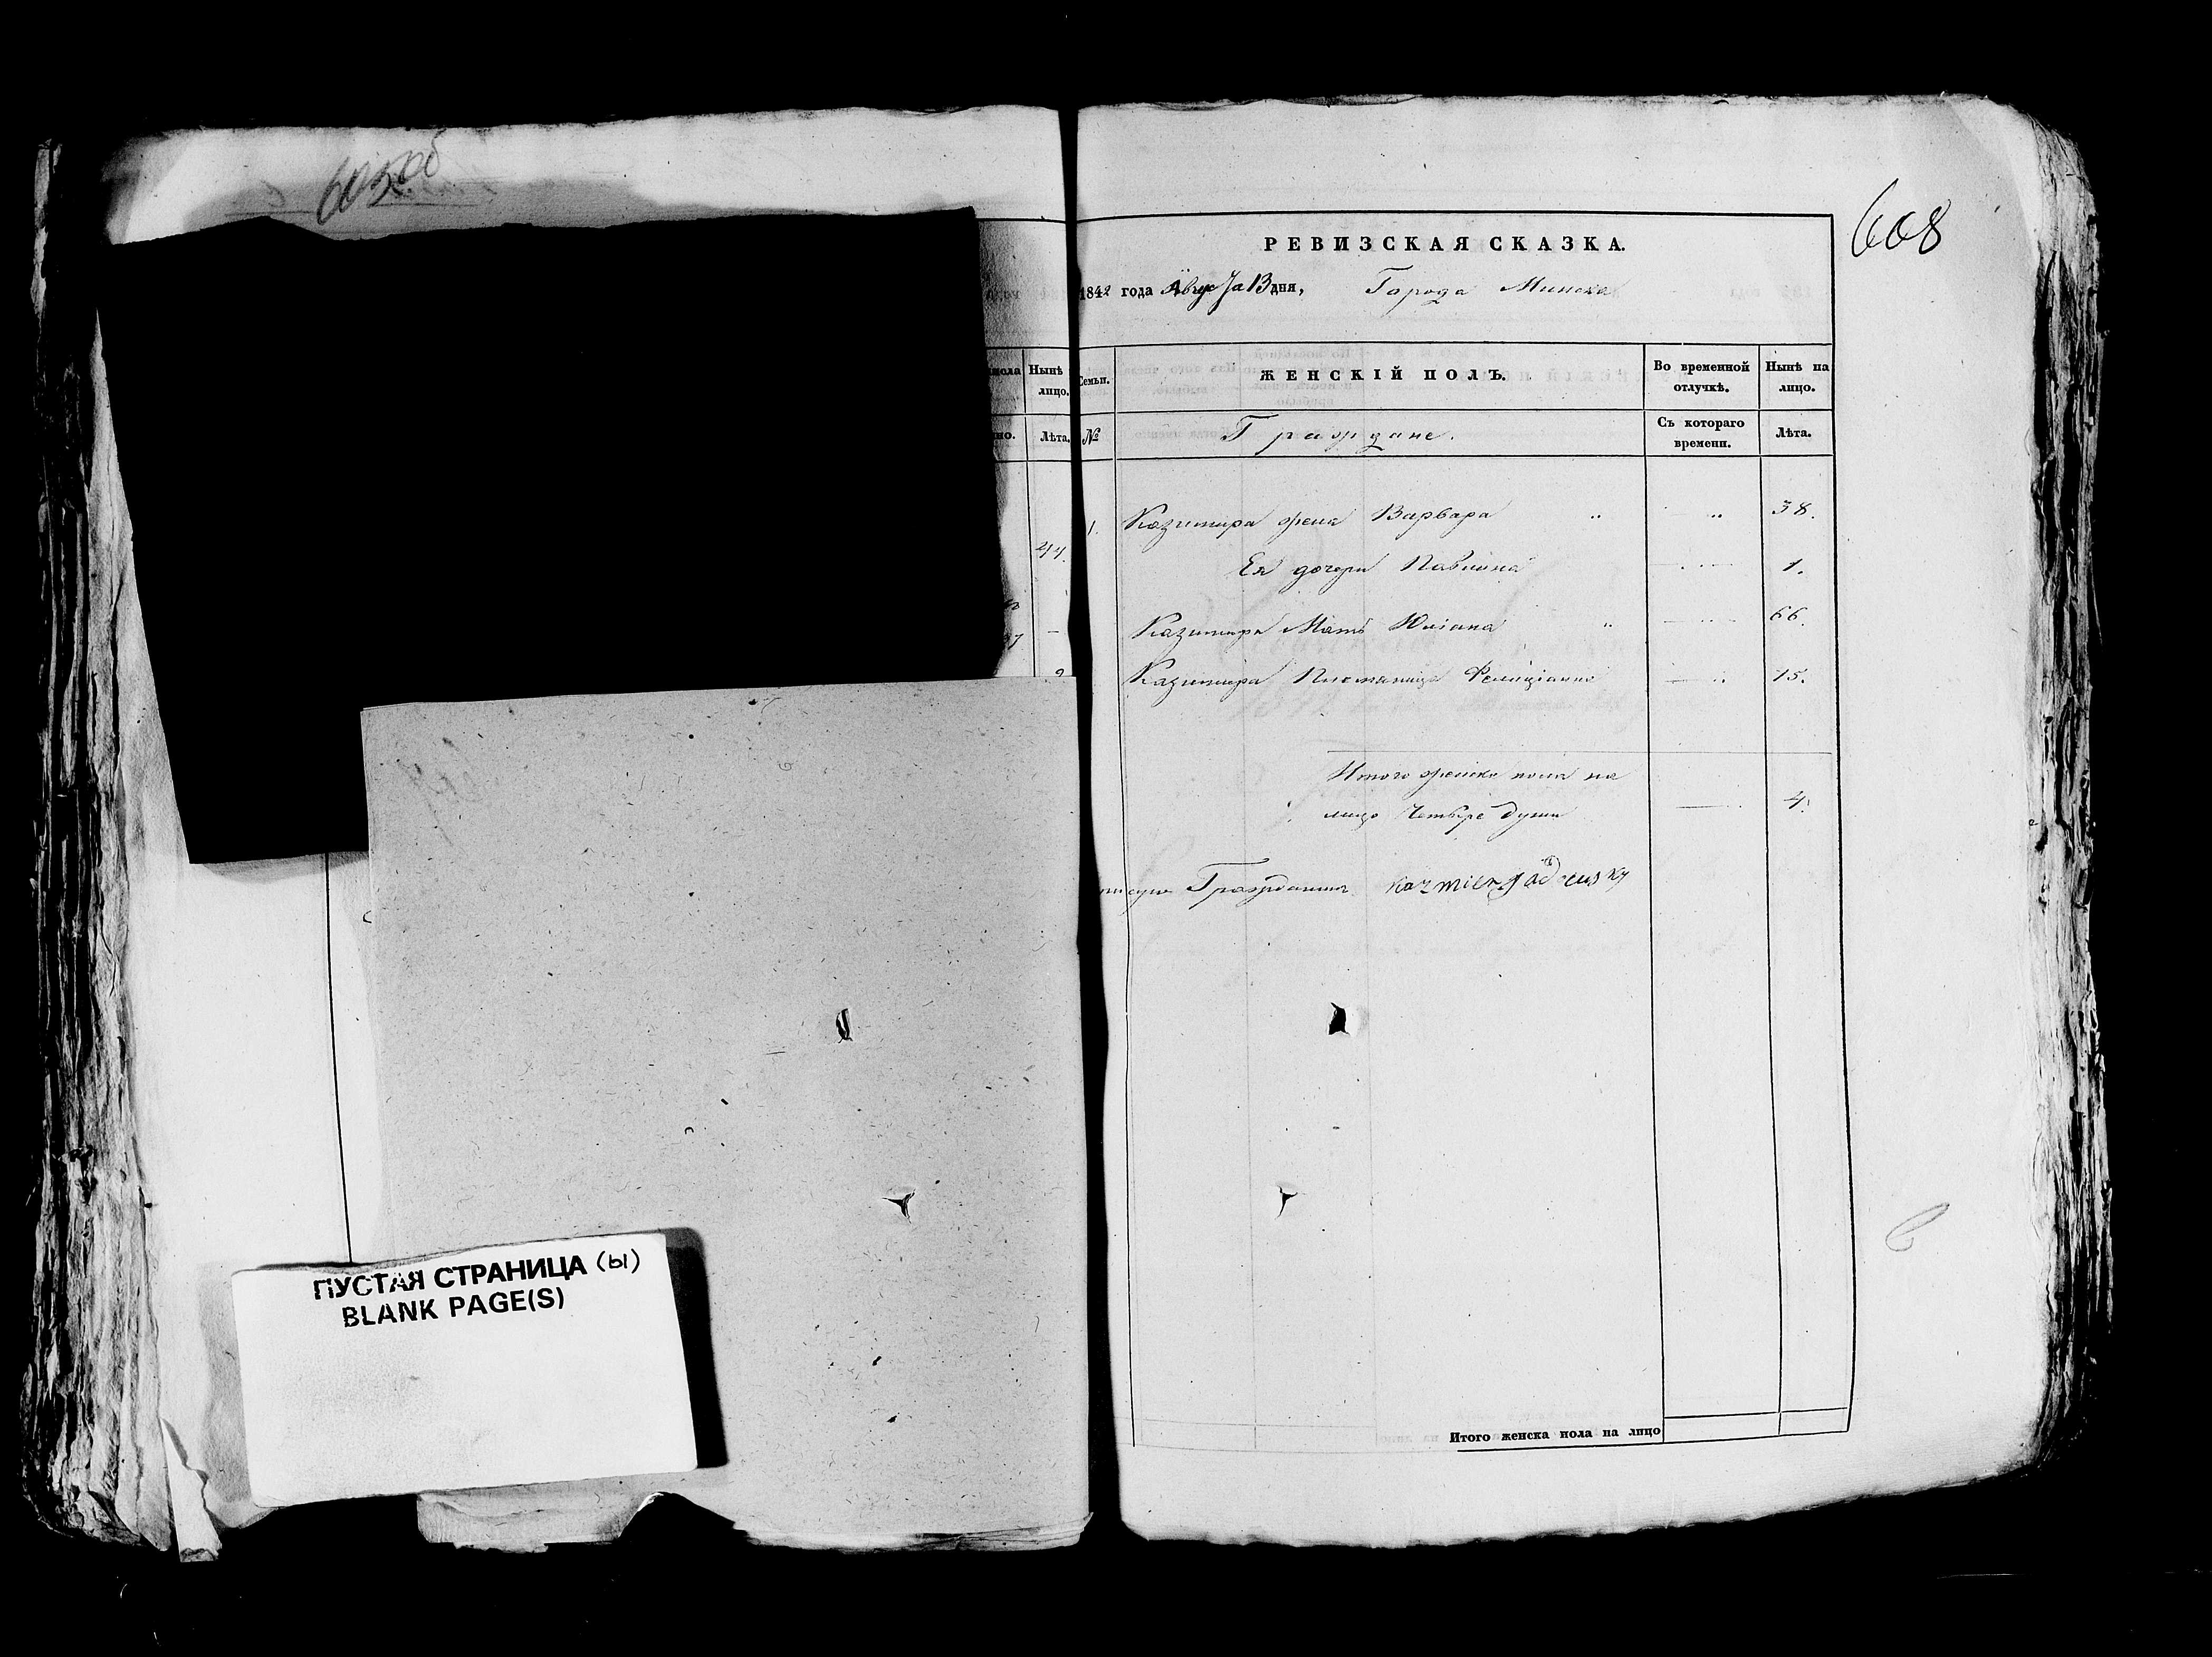 РЕВИЗСКАЯ СКАЗКА.
608
1842 года Августа 13 дня, Города Минска
Нынѣ
лицо.
Семьи.
ЖЕНСКІЙ ПОЛЪ.
Во временной
отлучкѣ.
Нынѣ на
лицо.
Лѣта.
№
Граждане.
Съ котораго
времени.
Лѣта.
44.
1. Казимира жена Варвара 38.
Ея дочери Павлина 1.
Казимира Мать Юліана 66.
Казимира Племяница Фелиціанна 15.
Итого женска пола на
лицо Четыре души 4.
Гражданинъ
Итого женска пола на лицо
ПУСТАЯ СТРАНИЦА (Ы)
BLANK PAGE(S)